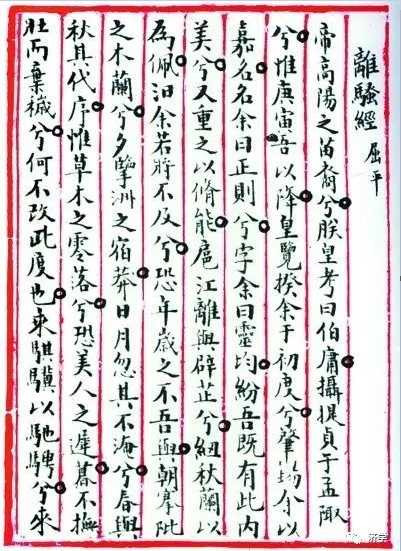 離騷經 屈平
帝高陽之苗裔兮朕皇考曰伯庸攝提貞于孟陬
兮惟庚寅吾以降皇覽揆余于初度兮肇錫余以
嘉名名余曰正則兮字余曰靈均紛吾既有此內
美兮又重之以脩能扈江離與辟芷兮紉秋蘭以
為佩汩余若將不及兮恐年歲之不吾與朝搴阰
之木蘭兮夕擥洲之宿莽日月忽其不淹兮春與
秋其代序惟草木之零落兮恐美人之遲暮不撫
壯而棄穢兮何不改此度也乘騏驥以馳騁兮來